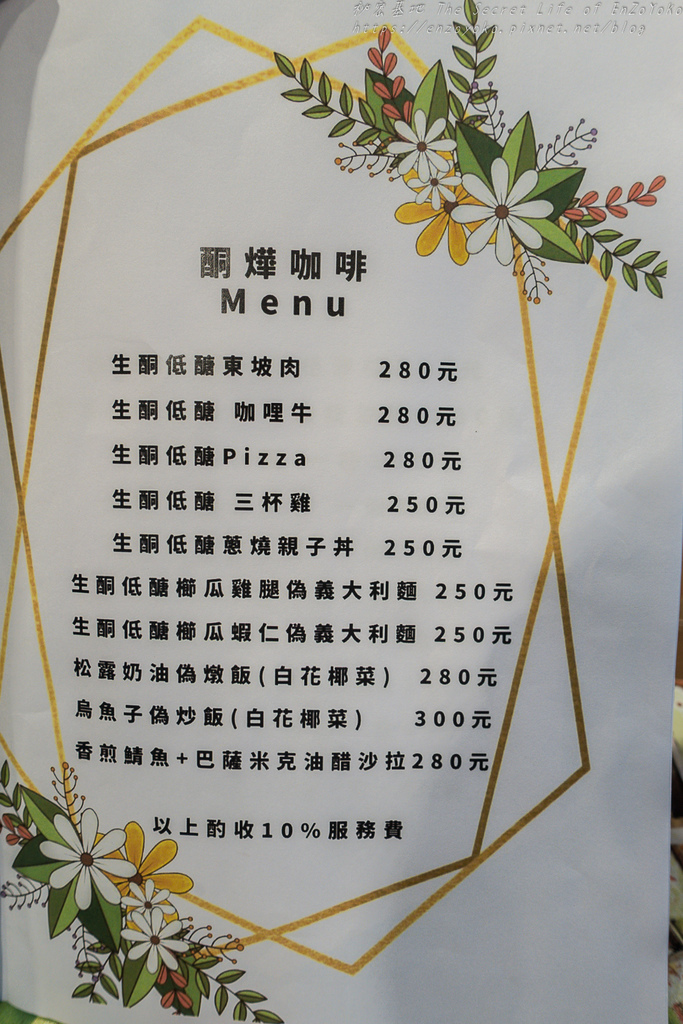 The Secret Life of EnZoYoko
https://enzoyoko.pixnet.net/blog
酮燁咖啡
Menu
生酮低醣東坡肉 280元
生酮低醣 咖哩牛 280元
生酮低醣Pizza 280元
生酮低醣 三杯雞 250元
生酮低醣蔥燒親子丼 250元
生酮低醣櫛瓜雞腿偽義大利麵 250元
生酮低醣櫛瓜蝦仁偽義大利麵 250元
松露奶油偽燉飯(白花椰菜) 280元
烏魚子偽炒飯(白花椰菜) 300元
香煎鯖魚+巴薩米克油醋沙拉280元
以上酌收10%服務費